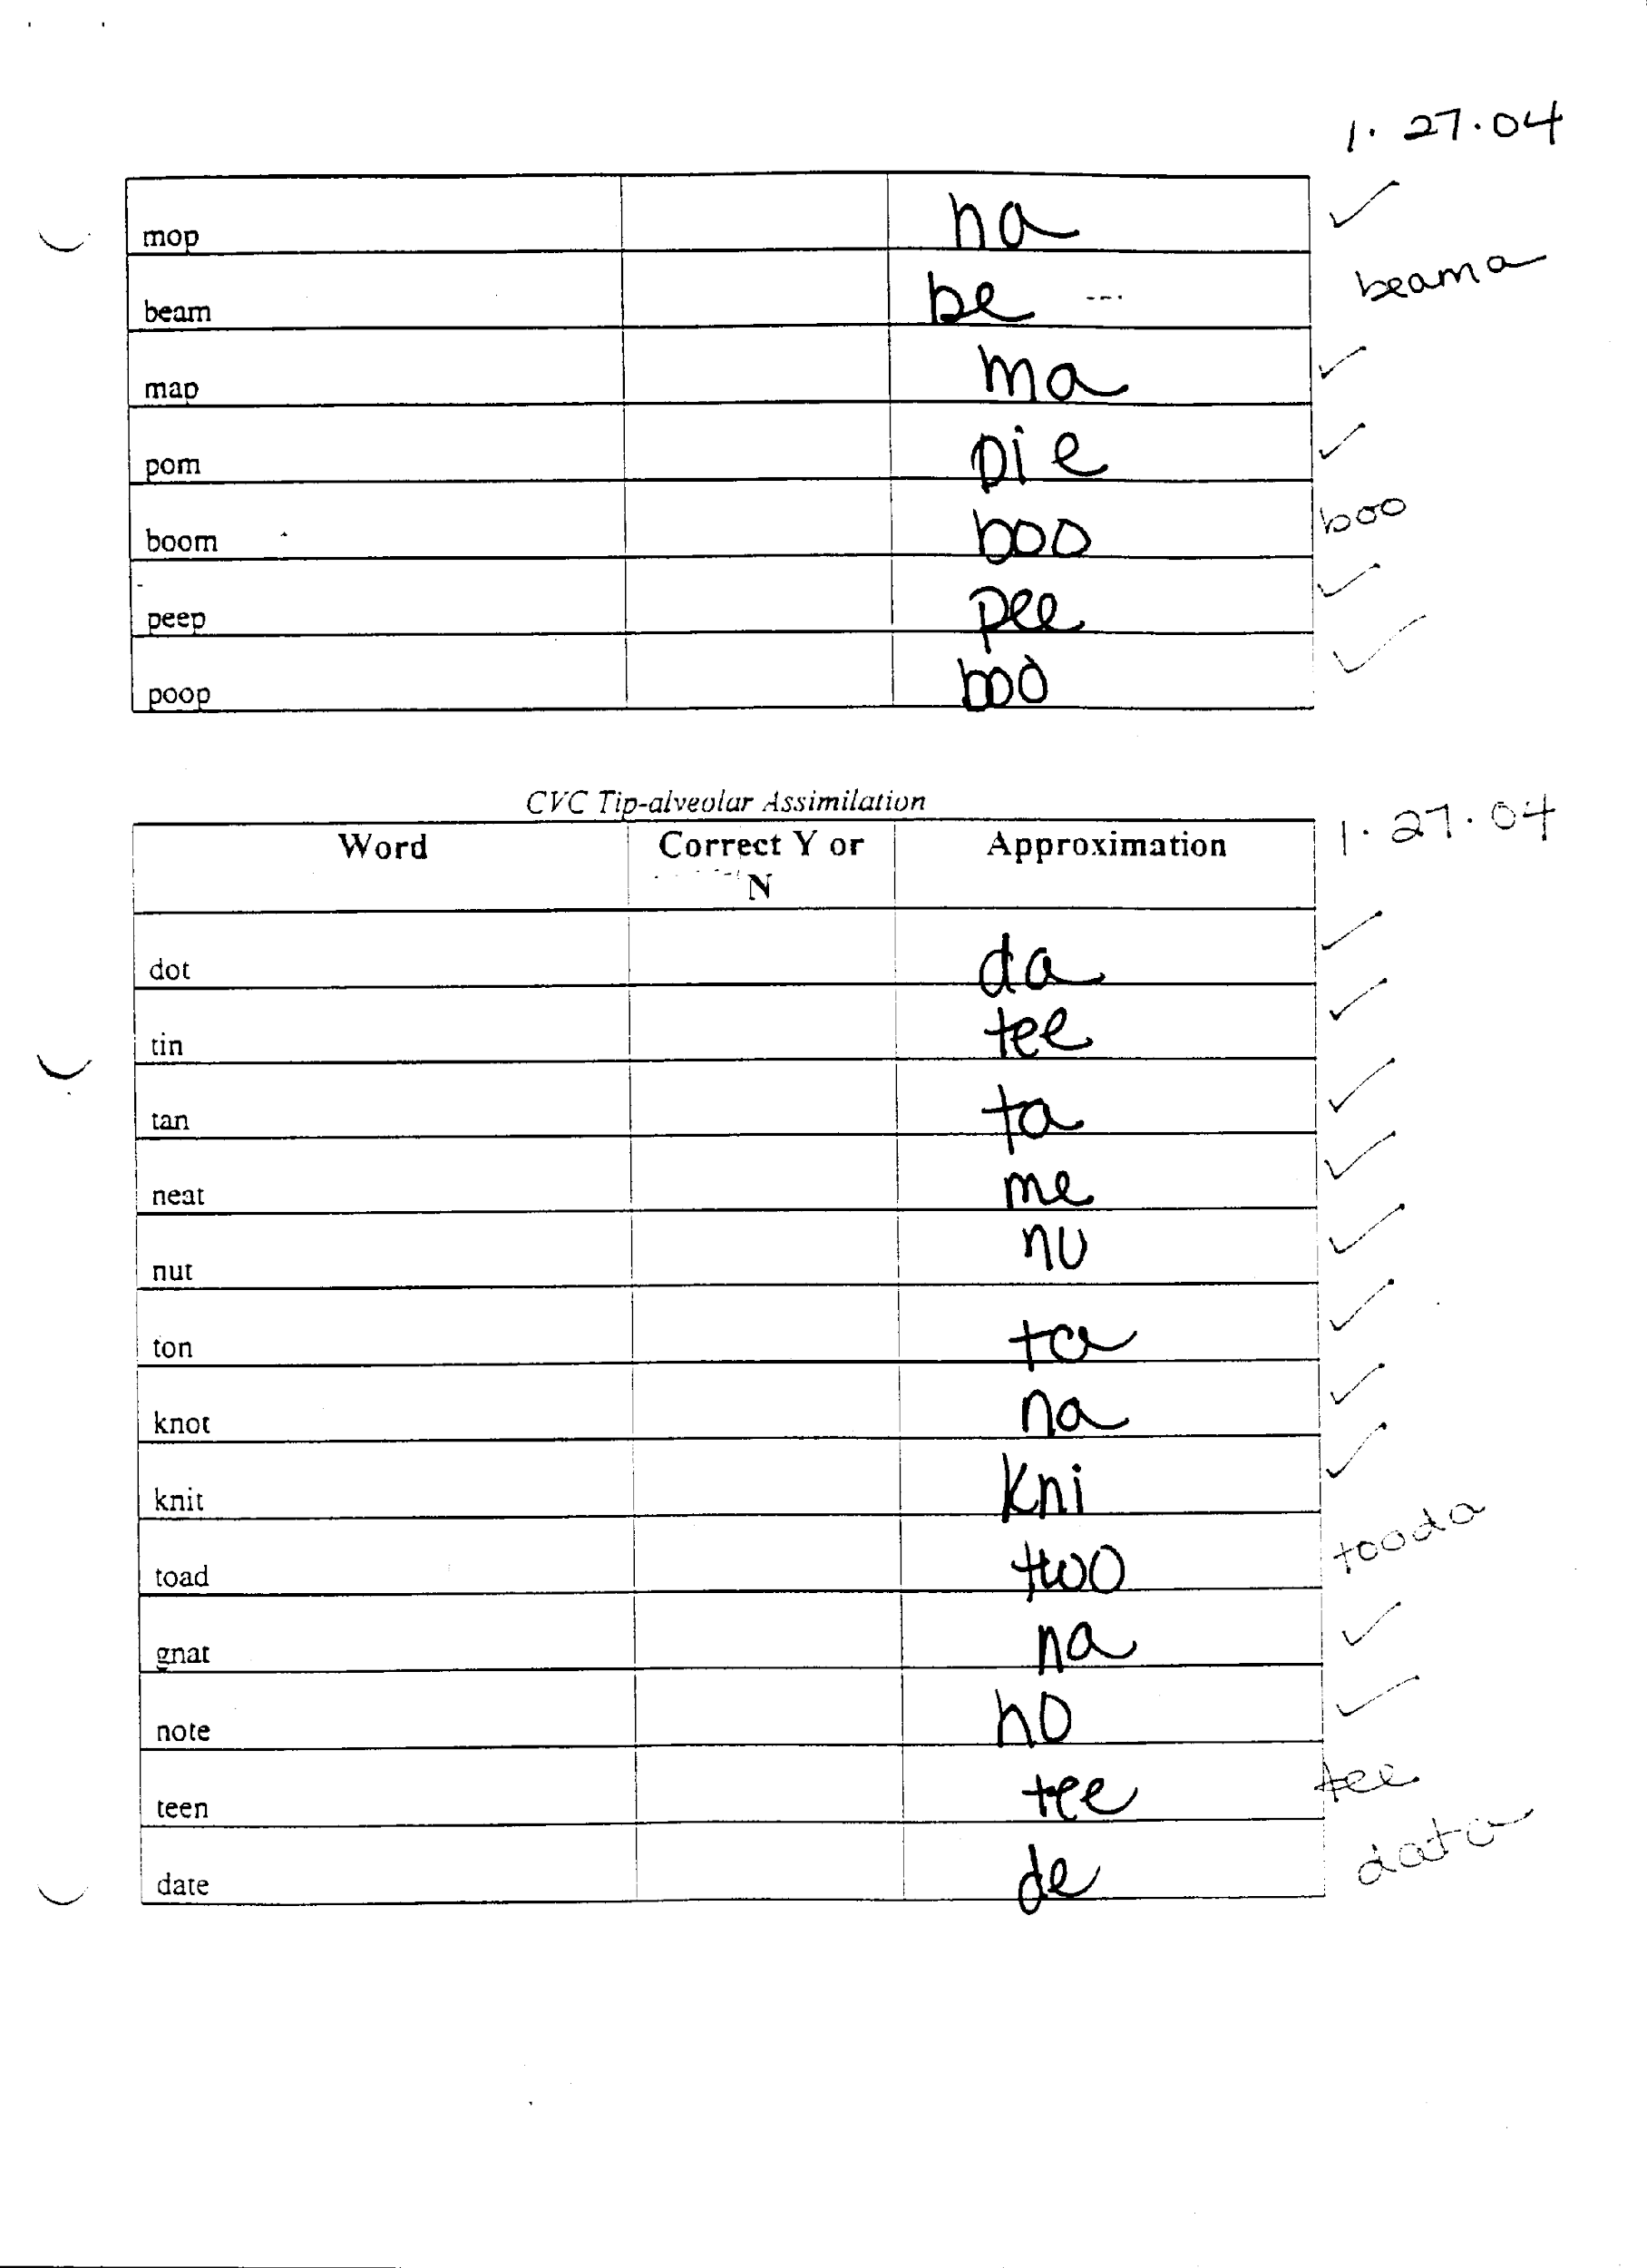 1. 27.04
mop ha ✓
beam be --- beama
map ma ✓
pom pie ✓
boom boo boo
peep pee ✓
poop boo ✓
CVC Tip-alveolar Assimilation
1. 27.04
Word Correct Y or N Approximation
dot da ✓
tin tee ✓
tan ta ✓
neat me ✓
nut nu ✓
ton ta ✓
knot na ✓
knit kni ✓
toad two tooda
gnat na ✓
note no ✓
teen tee tee
date de data